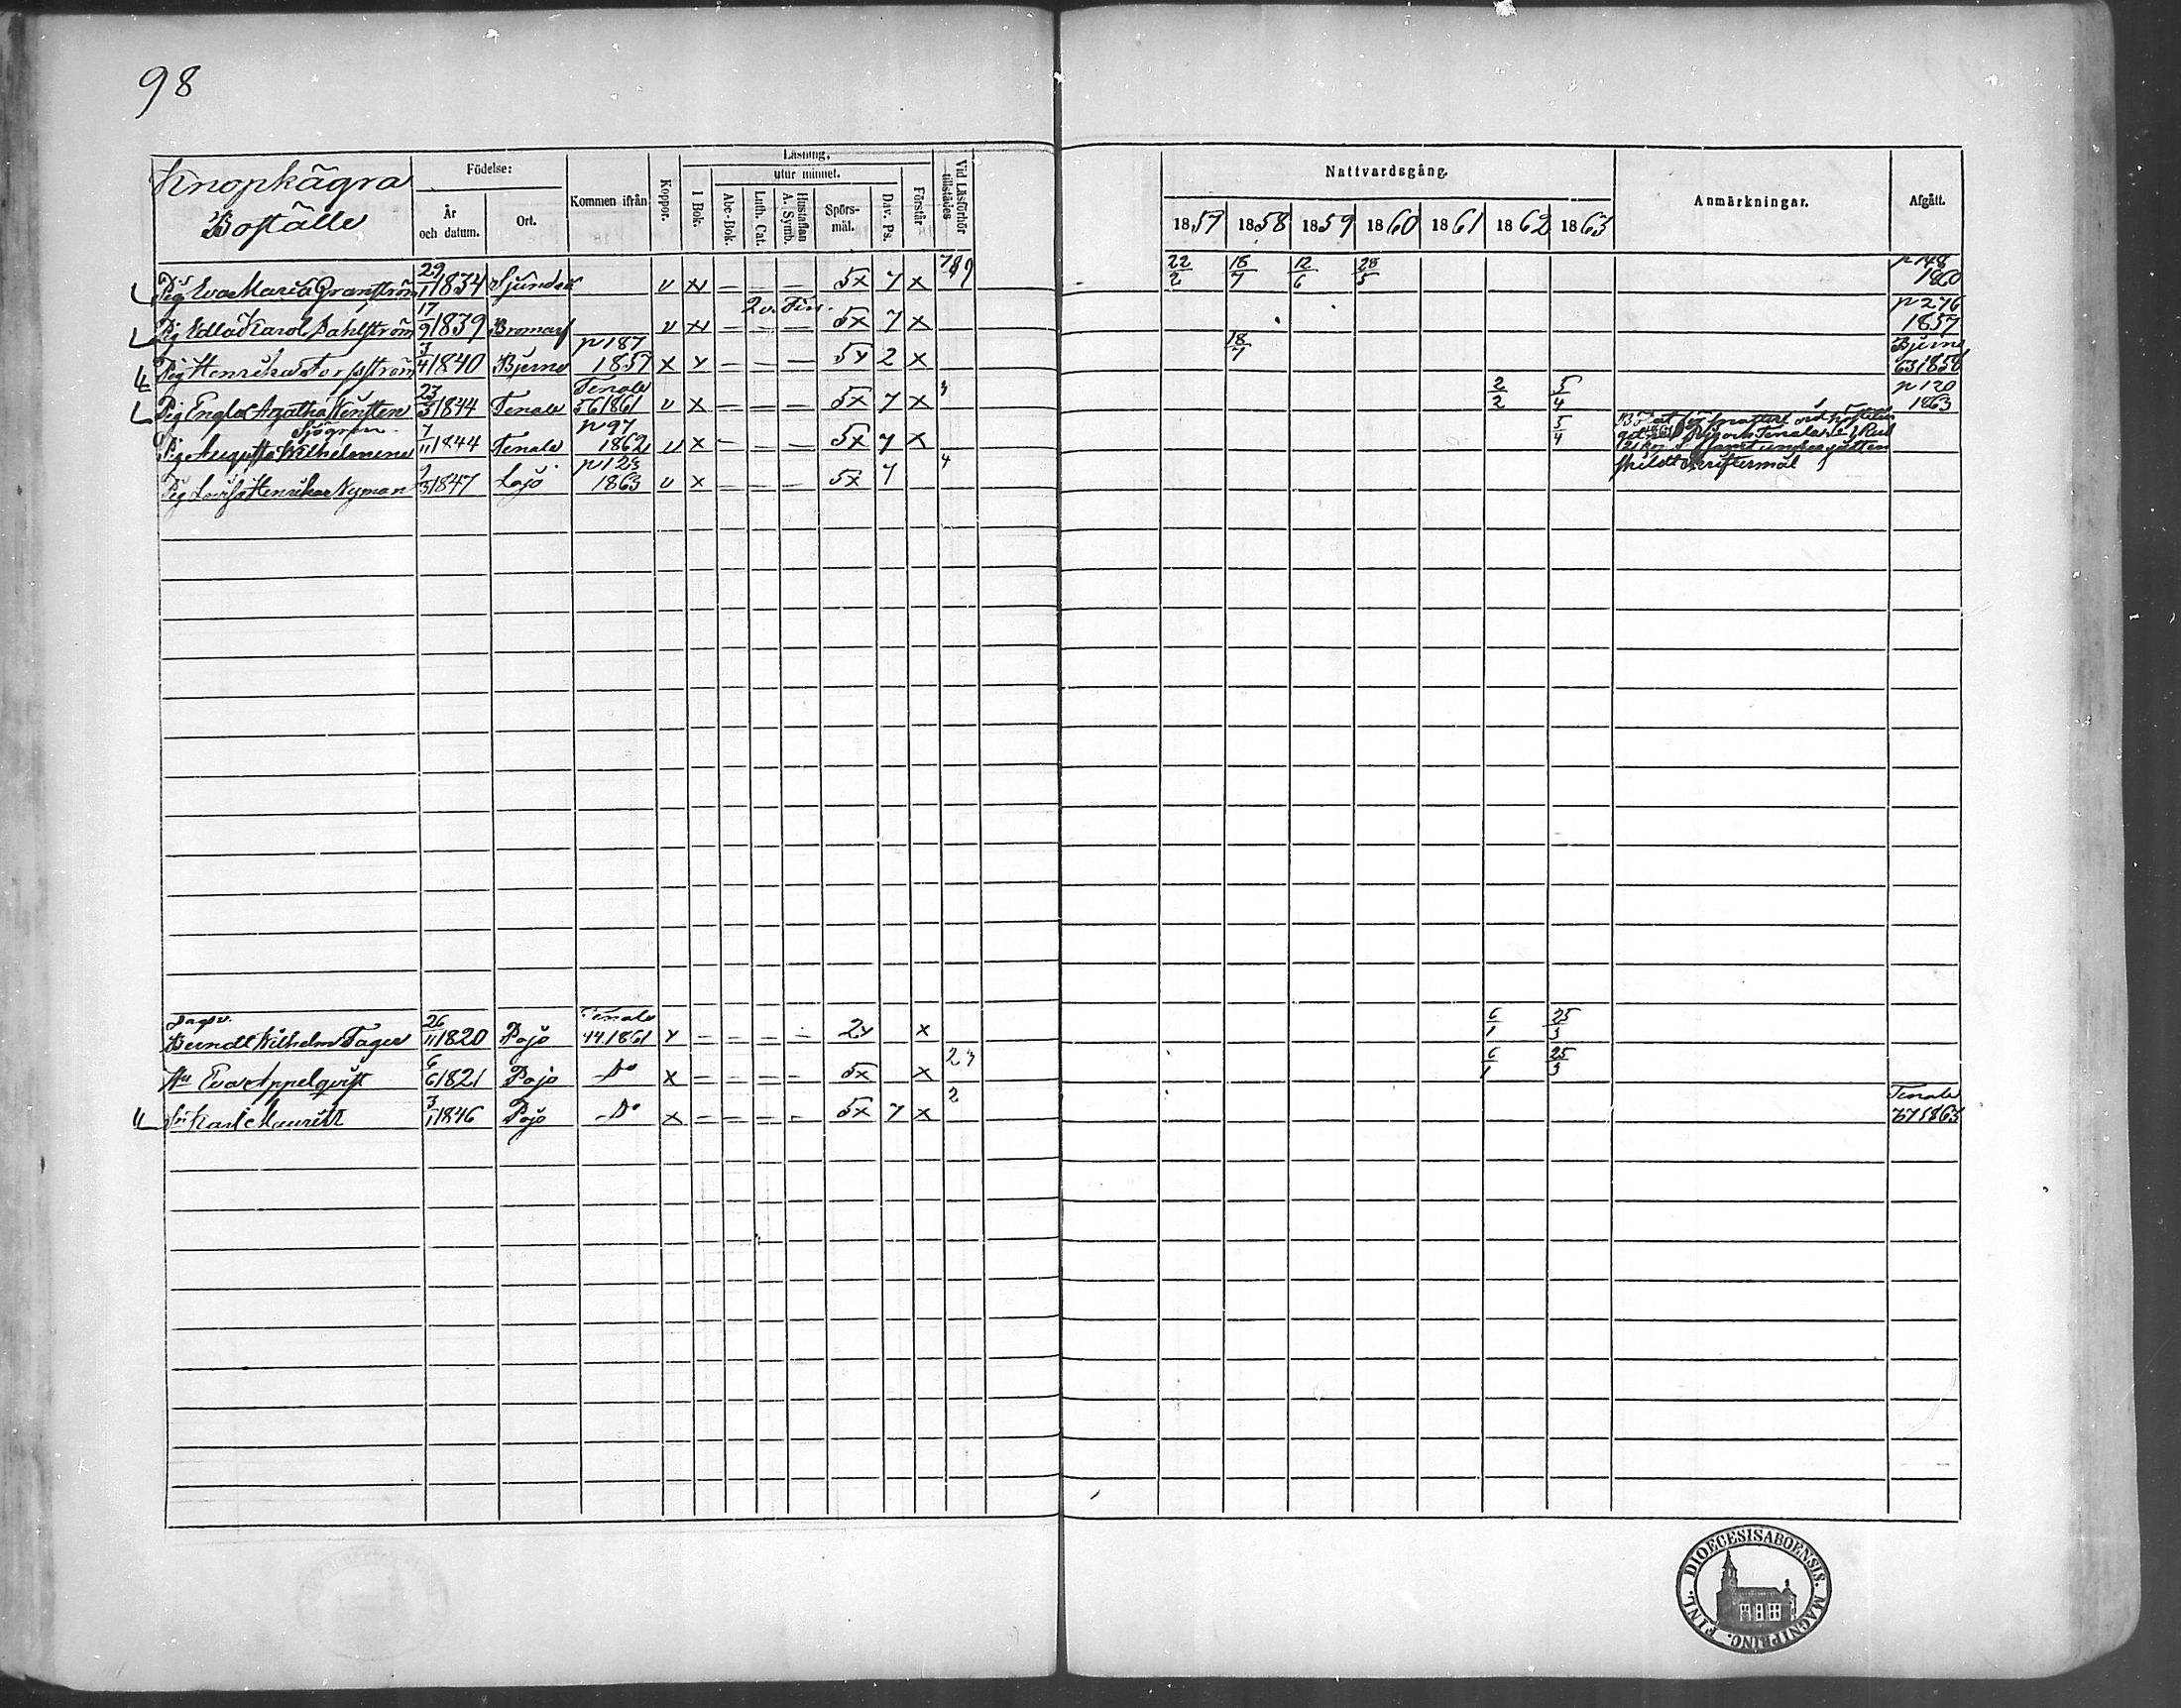 98
Knopkägra
Boställe
Födelse:
År
och datum.
Ort.
Kommen ifrån
Koppor.
Läsning,
I Bok.
utur minnet.
Abc-Bok.
Luth. Cat.
Hustaflan
A. Symb.
Spörs-
mål.
Dav. Ps.
Förstår
Vid Läsförhör
tillstädes
Nattvardsgång.
1857 1858 1859 1860 1861 1862 1863
Anmärkningar.
Afgått.
Pig Eva Maria Granström 29/1 1834 Sjundeå v x — — — 5x 7 x 789 22/2 18/7 12/6 28/5 p 148 1860
Pig Edla Karol Dahlström 17/9 1839 Bromarf v x 2 v. Fin. 5x 7 x p 276 1857
Pig Henrika Forsström 3/4 1840 Bjerno p 187 1857 x x — — — 5x 2 x 18/7 Bjerno 63 1858
Pig Engla Agatha 23/3 1844 Tenala Tenala 56 1861 v x — — — 5x 7 x 3 2/2 5/4 p 120 1863
Sjögren
Pig Augusta Wilhelmina 7/11 1844 Tenala p 97 1862 v x — — — 5x 7 x 5/4
skildt skriftermål
Pig Lovisa Henrika Nyman 2/3 1847 Lojo p 123 1863 v x — — — 5x 7 4
Dagsv.
Berndt Wilhelm Fager 26/11 1820 Pojo Tenala 44.1861 x — — — — 2x x 6/1 25/3
Hu Eva Appelqvist 6/6 1821 Pojo Do x — — — — 5x x 23 6/1 25/3
Sn Karl Maurits 3/1 1846 Pojo Do x — — — — 5x 7 x 2 Tenala 67 1863
FINL. DIOECESIS ABOENSIS. MAGNI PRINC.